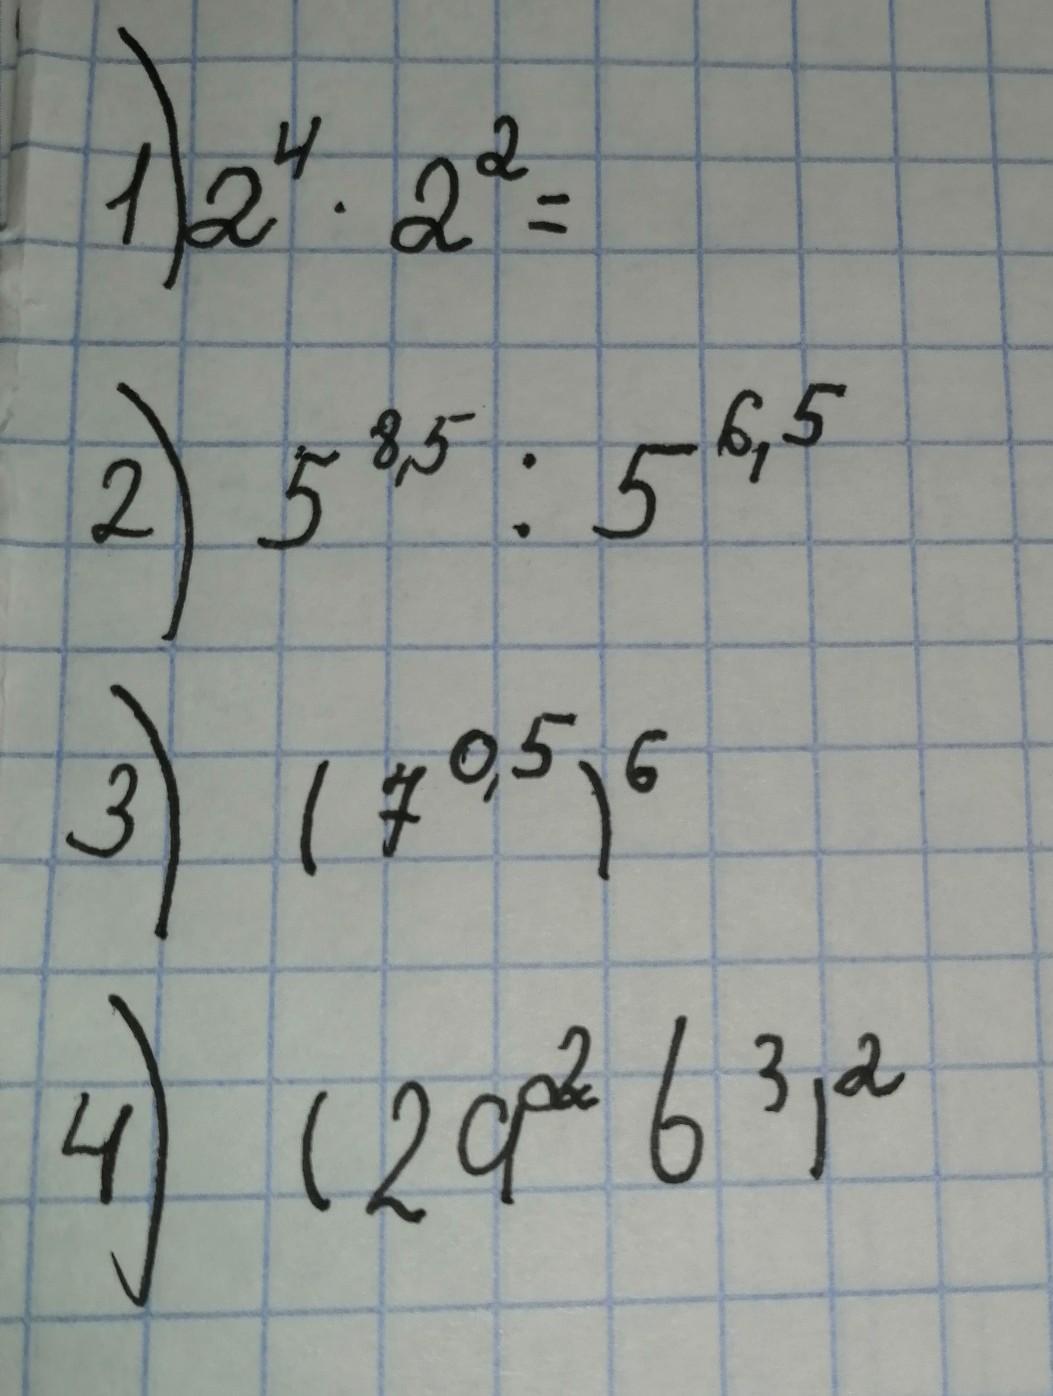 1) 2⁴ · 2² =
2) 5^8,5 : 5^6,5
3) (7^0,5)^6
4) (2a²b³)²